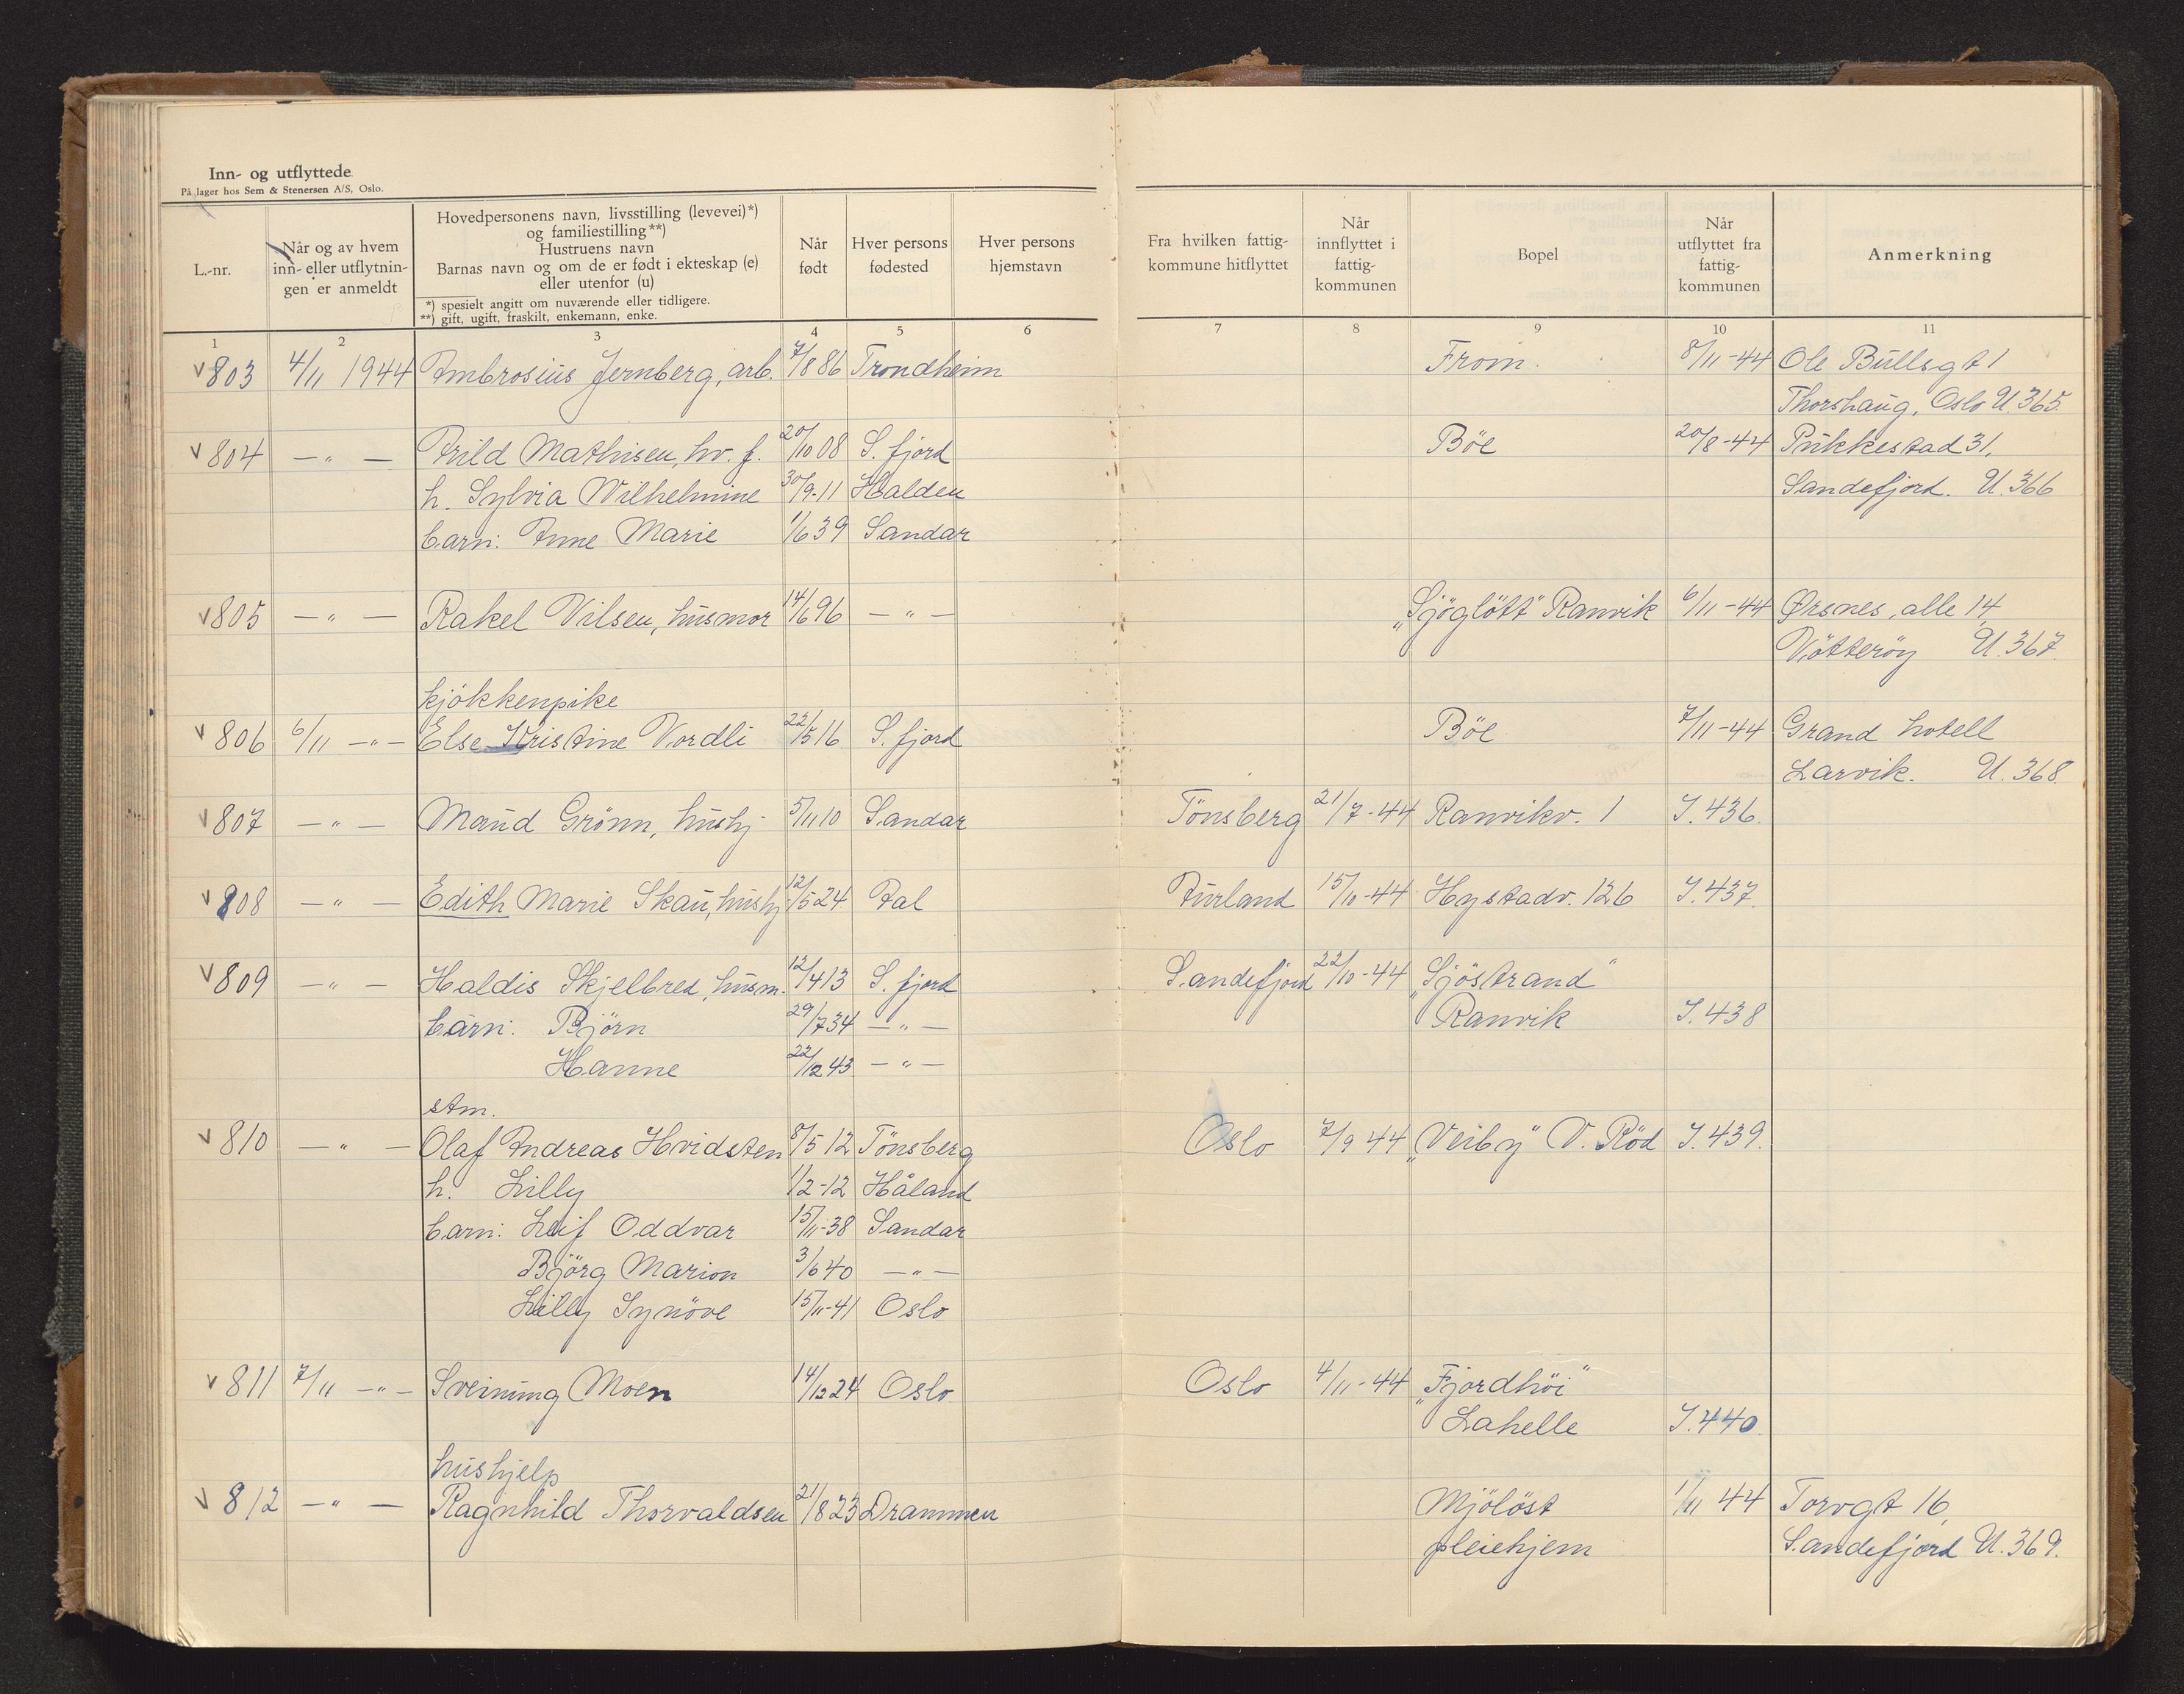 Inn- og utflyttede
På lager hos Sem & Stenersen A/S, Oslo.
L.-nr.
Når og av hvem
inn- eller utflytnin-
gen er anmeldt
Hovedpersonens navn, livsstilling (levevei)*)
og familiestilling**)
Hustruens navn
Barnas navn og om de er født i ekteskap (e)
eller utenfor (u)
*) spesielt angitt om nuværende eller tidligere.
**) gift, ugift, fraskilt, enkemann, enke.
Når
født
Hver persons
fødested
Hver persons
hjemstavn
Fra hvilken fattig-
kommune hitflyttet
Når
innflyttet i
fattig-
kommunen
Bopel
Når
utflyttet fra
fattig-
kommunen
Anmerkning
1 2 3 4 5 6 7 8 9 10 11
v 803 4/11 1944 Ambrosius Jernberg, arb. 7/8 86 Trondheim From. 8/11-44 Ole Bullsgt 1
Thorshaug, Oslo U.365.
v 804 — " — Arild Mathisen, hv. f. 20/10 08 S. fjord Böe 20/8-44 Pukkestad 31,
h. Sylvia Wilhelmine 30/9-11 Halden Sandefjord. U.366
barn: Anne Marie 1/6 39 Sandar
v 805 — " — Rakel Nilsen, husmor 14/6 96 — " — „Sjöglött" Ranvik 6/11-44 Ørsnes, alle 14,
Nötteröy U.367.
kjökkenpike
v 806 6/11 — " — Else Kristine Nordli 22/5 16 S. fjord Böe 7/11-44 Grand hotell
Larvik. U.368.
v 807 — " — Maud Grönn, hushj 5/11 10 Sandar Tönsberg 21/7-44 Ranvikv. 1 I.436.
v 808 — " — Edith Marie Skau, hushj 12/5 24 Aal Aurland 15/10-44 Hystadv. 126 I.437.
v 809 — " — Haldis Skjelbred, husm. 12/4 13 S. fjord Sandefjord 22/10-44 „Sjöstrand"
barn: Björn 29/7 34 — " — Ranvik I.438
Hanne 22/12 43 — " —
stm.
v 810 — " — Olaf Andreas Hvidsten 8/5 12 Tönsberg Oslo 7/9 44 „Veiby" V. Röd I.439.
h. Lilly 1/2-12 Håland
barn: Leif Oddvar 15/11-38 Sandar
Björg Marion 3/6 40 — " —
Lilly Synöve 15/11-41 Oslo
v 811 7/11 — " — Sveinung Moen 14/12 24 Oslo Oslo 4/11-44 „Fjordhöi"
Lahelle I.440.
hushjelp
v 812 — " — Ragnhild Thorvaldsen 21/8 23 Drammen Mjölöst 1/11 44 Torvgt 16,
pleiehjem Sandefjord U.369.